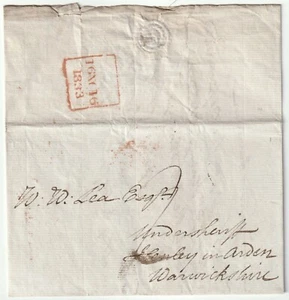 1833
W: Lea Esqr
Undersheriff
Henley in Arden
Warwickshire